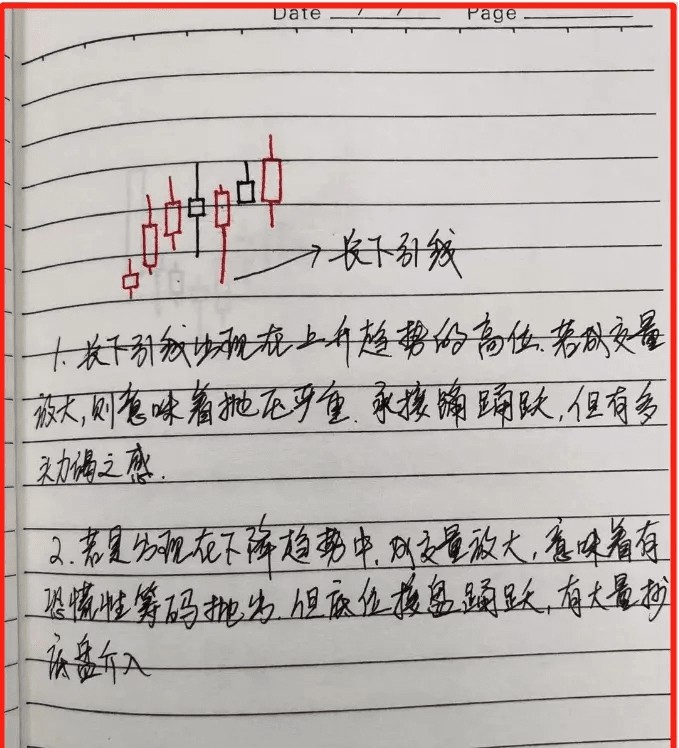 Date / / Page
长下引线
1. 长下引线出现在上升趋势的高位.若成交量
放大,则意味着抛压严重.承接踊踊跃,但有多
头力竭之感.
2.若是出现在下降趋势中,成交量放大,意味着有
恐慌性筹码抛出.但底位接盘踊跃,有大量抄
底盘介入